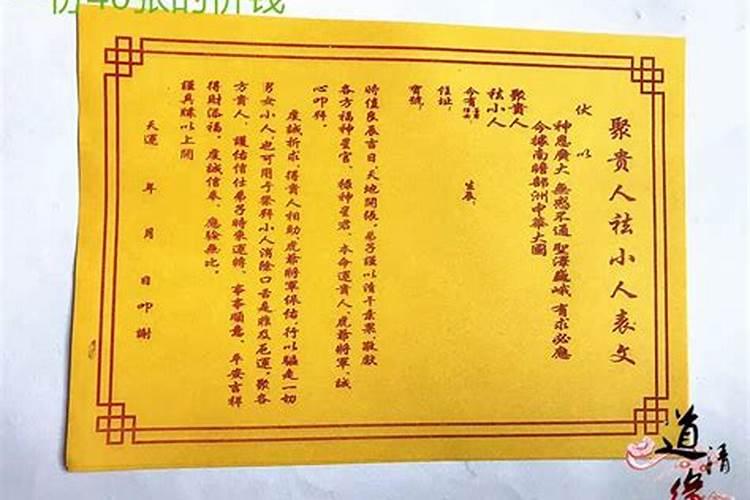 一份40张的价钱
聚贵人祛小人表文
伏以
神恩广大 無感不通 聖澤巍峨 有求必應
今據南瞻部洲中華大國
聚贵人
祛小人
今有
住址
生辰
寶號
時值良辰吉日、天地開張、弟子謹以清干素菓敬獻
各方福神星官、祿神星君、本命運貴人、虎爺將軍、誠
心叩拜。
虔誠祈求、得貴人相助虎爺將軍保佑行以驅走一切
男女小人也可用于祭拜小人消除口舌是非及厄運、聚各
方貴人、護佑信仕弟子時来運轉、事事順意、平安吉祥
得財添福、虔誠信奉、應驗無比。
謹具牒以上聞
天運 年 月 日叩謝
道
清
缘